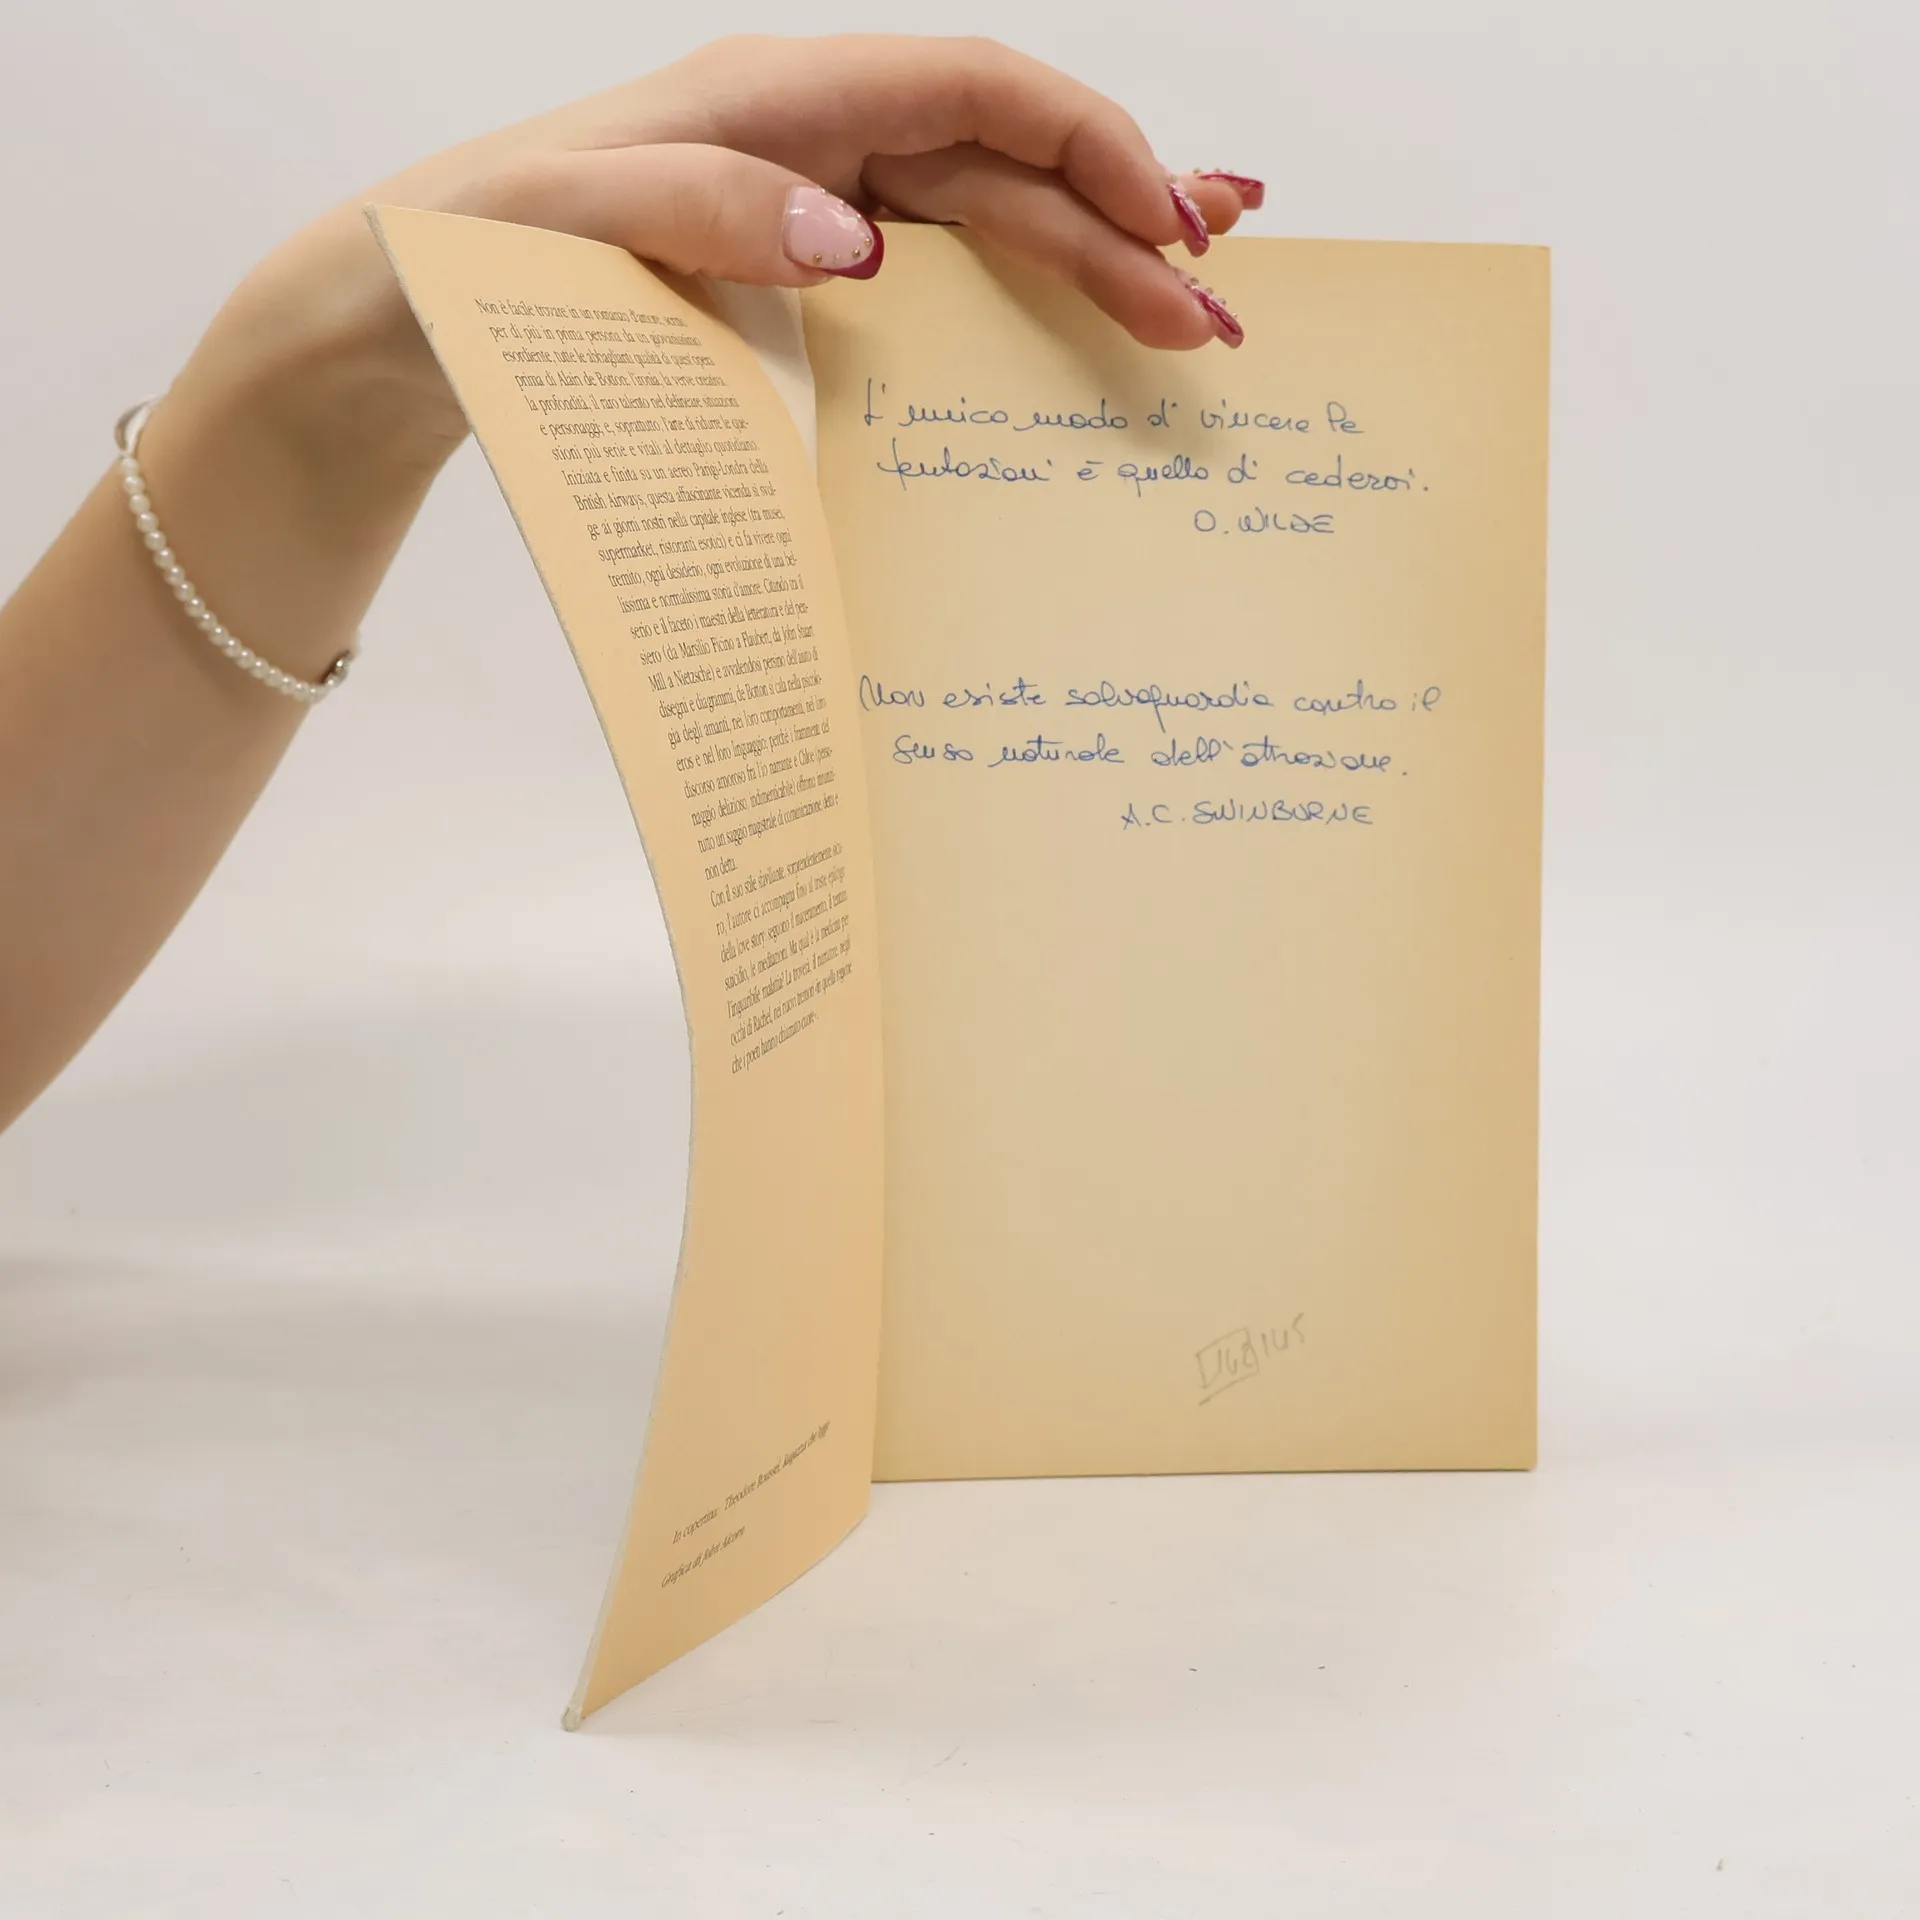 Non è facile trovare in un romanzo d'amore, scritto
per di più in prima persona da un giovanissimo
esordiente, tutte le abbaglianti qualità di quest'opera
prima di Alain de Botton: l'ironia, la verve creativa,
la profondità, il raro talento nel delineare situazioni
e personaggi, e, soprattutto, l'arte di ridurre le que-
stioni più serie e vitali al dettaglio quotidiano.
Iniziata e finita su un aereo Parigi-Londra della
British Airways, questa affascinante vicenda si svol-
ge ai giorni nostri nella capitale inglese (tra musei,
supermarket, ristoranti esotici) e ci fa vivere ogni
tremito, ogni desiderio, ogni evoluzione di una bel-
lissima e normalissima storia d'amore. Citando tra il
serio e il faceto i maestri della letteratura e del pen-
siero (da Marsilio Ficino a Flaubert, da John Stuart
Mill a Nietzsche) e avvalendosi persino dell'aiuto di
disegni e diagrammi, de Botton si cala nella psicolo-
gia degli amanti, nei loro comportamenti, nel loro
eros e nel loro linguaggio: perché i frammenti del
discorso amoroso fra l'io narrante e Chloe (perso-
naggio delizioso, indimenticabile) offrono innanzi-
tutto un saggio magistrale di comunicazione, detti e
non detti.
Con il suo stile sfavillante, sorprendentemente sicu-
ro, l'autore ci accompagna fino al triste epilogo
della love story: seguono il maceramento, il tentato
suicidio, le meditazioni. Ma qual è la medicina per
l'inguaribile malattia? La troverà, il narratore, negli
occhi di Rachel, nei nuovi tremori «in quella regione
che i poeti hanno chiamato cuore».
In copertina: Theodore Roussel, Ragazza che legge
Grafica di John Alcorn
L'unico modo di vincere le
tentazioni è quello di cederci.
O. WILDE
Non esiste salvaguardia contro il
senso naturale dell'attrazione.
A.C. SWINBURNE